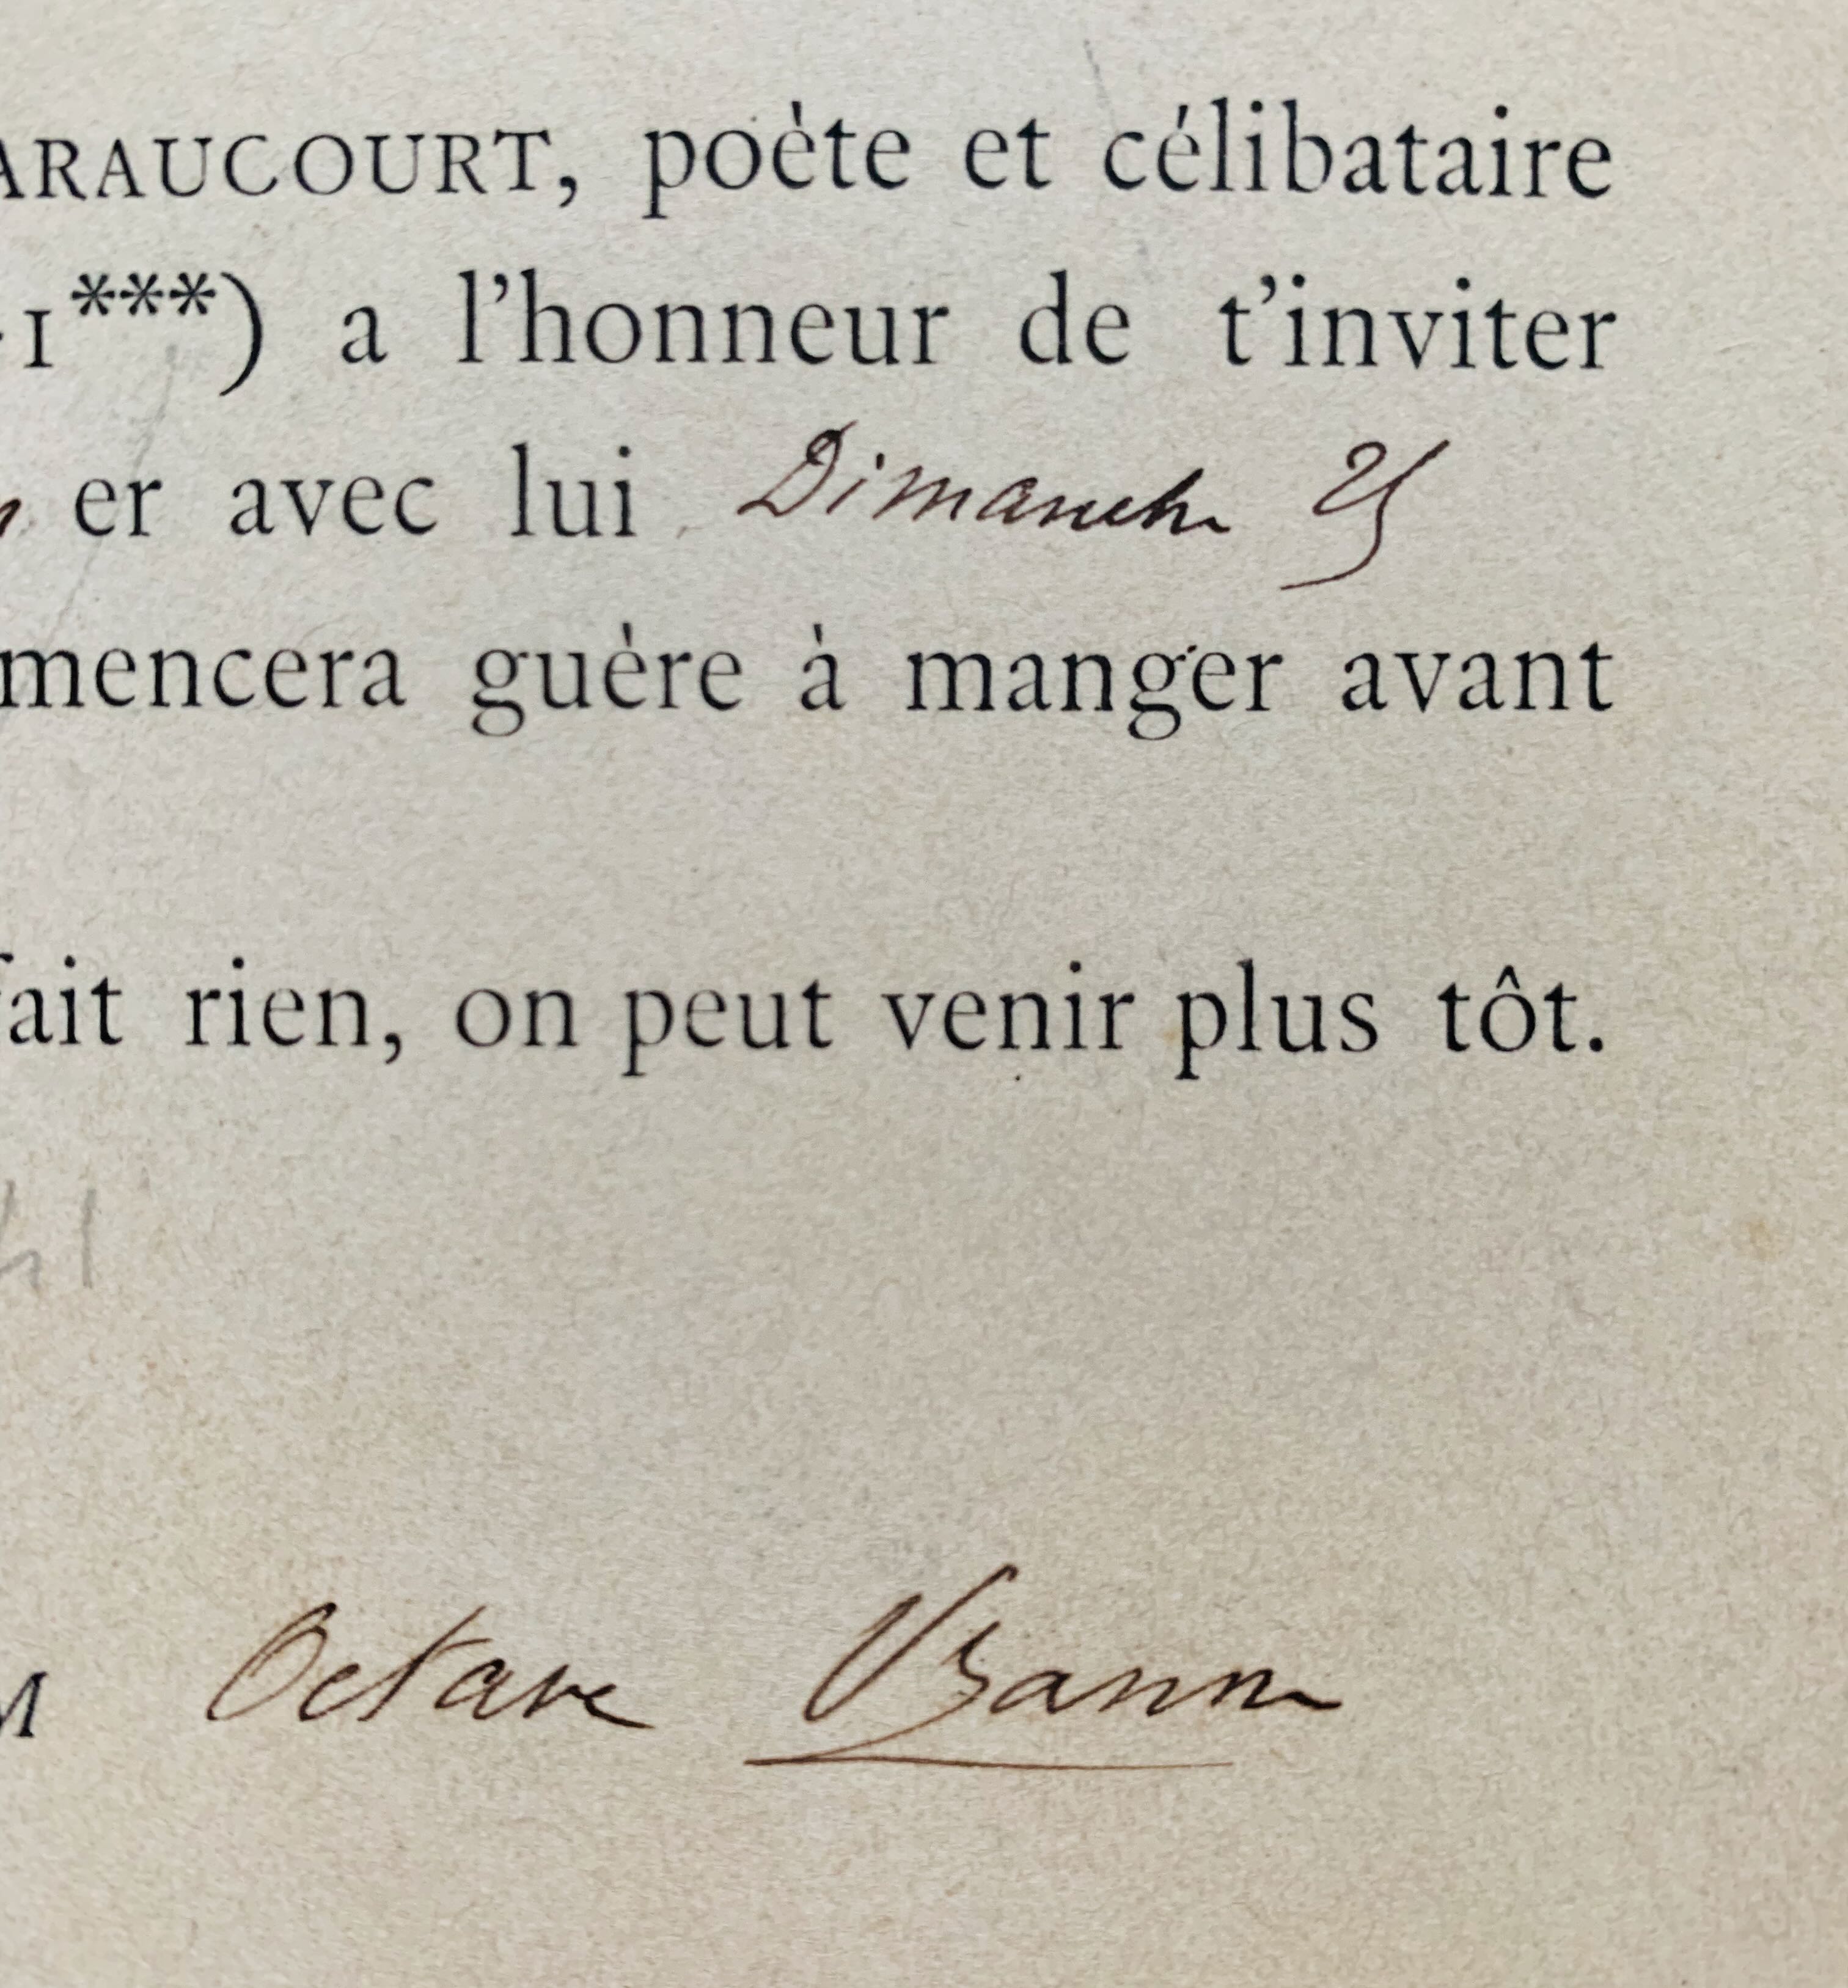 ARAUCOURT, poète et célibataire
I***) a l'honneur de t'inviter
er avec lui Dimanche 25
mencera guère à manger avant
fait rien, on peut venir plus tôt.
M Octave Uzanne